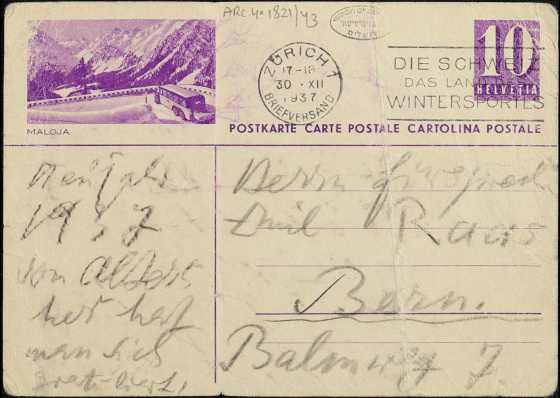 ARC 4o 1821/43
ZÜRICH 1
17-18
30.XII
1937
BRIEFVERSAND
DIE SCHWEIZ
DAS LAND DES
WINTERSPORTES
10
HELVETIA
MALOJA
POSTKARTE CARTE POSTALE CARTOLINA POSTALE
Neujahr
1937
von Alters
her hat
man sich
gratuliert,
Herrn
Emil Raas
Bern.
Balmweg 7